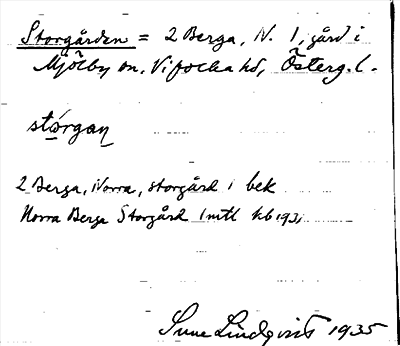 Storgården = 2 Berga, N. 1, gård i
Mjölby sn, Vifolka hd, Österg. l.
stórgan
2 Berga, Norra, storgård 1 bek
Norra Berga Storgård 1 mtl kb 1931
Sune Lindqvist 1935